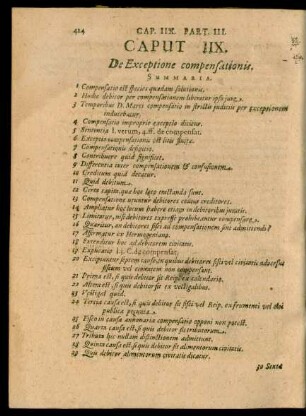 414 CAP. IIX. PART. III.
CAPUT IIX.
De Exceptione compensationis.
SUMMARIA.
1 Compensatio est species quædam solutionis.
2 Hodie debitor per compensationem liberatur ipso jure.
3 Temporibus D. Marci compensatio in strictis judiciis per exceptionem
inducebatur.
4 Compensatio impropriè exceptio dicitur.
5 Sententia l. verum, 4. ff. de compensat.
6 Exceptio compensationis est litis finita.
7 Compensationis definitio.
8 Contribuere quid significet.
9 Differentia inter compensationem & confusionem.
10 Creditum quid dicatur.
11 Quid debitum.
12 Certa capita, quæ hoc loco enodanda sunt.
13 Compensatione utuntur debitores civium creditores.
14 Ampliatur hoc in
15 Limitatur, nisi debitores expressè prohibeantur compensare.
16 Quæritur, an debitores fisci ad compensationem sint admittendi?
17 Affirmatur ex Hermogeniano.
18 Extenditur hoc ad debitorem civitatis.
19 Explicatio l. 3. C. de compensat.
20 Excipiuntur septem causæ, ex quibus debitores fisci vel civitatis adversus
fiscum vel civitatem non compensant.
21 Prima est, si quis debitor sit Reip. ex calendario.
22 Altera est, si quis debitor sit ex vectigalibus.
23 Vectigal quid.
24 Tertia causa est, si quis debitor sit fisci vel Reip. ex frumenti vel olei
publica pecunia.
25 Fisco in causa annonaria compensatio opponi non potest.
26 Quarta causa est, si quis debitor sit tributorum.
27 Tributa hîc nullam distinctionem admittunt.
28 Quinta causa est, si quis debitor sit alimentorum civitatis.
29 Quis debitor alimentorum civitatis dicatur.
30 Sexta